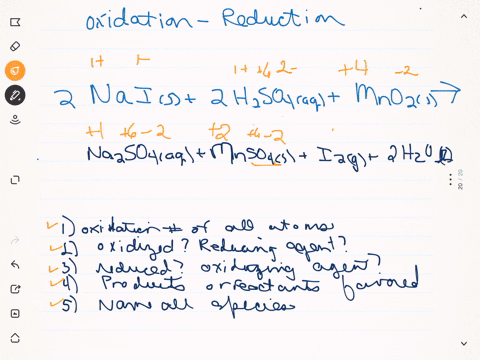 Oxidation - Reduction
1+ 1- 1+ +6 2- +4 -2
2 NaI(s) + 2 H2SO4(aq) + MnO2(s) →
+1 +6 -2 +2 +6 -2
Na2SO4(aq) + MnSO4(s) + I2(g) + 2 H2O
1) oxidation # of all atoms
2) oxidized? Reducing agent?
3) reduced? oxidizing agent?
4) Products or reactants favored
5) Name all species
20 / 20